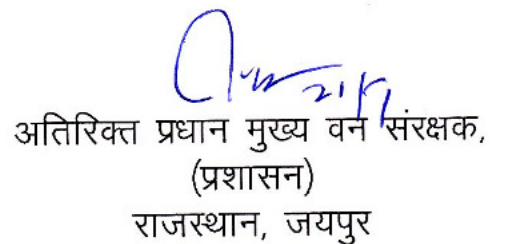 अतिरिक्त प्रधान मुख्य वन संरक्षक,
(प्रशासन)
राजस्थान, जयपुर